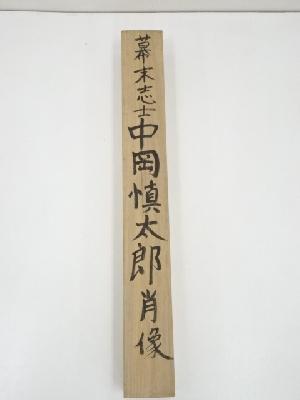 幕末志士中岡慎太郎肖像